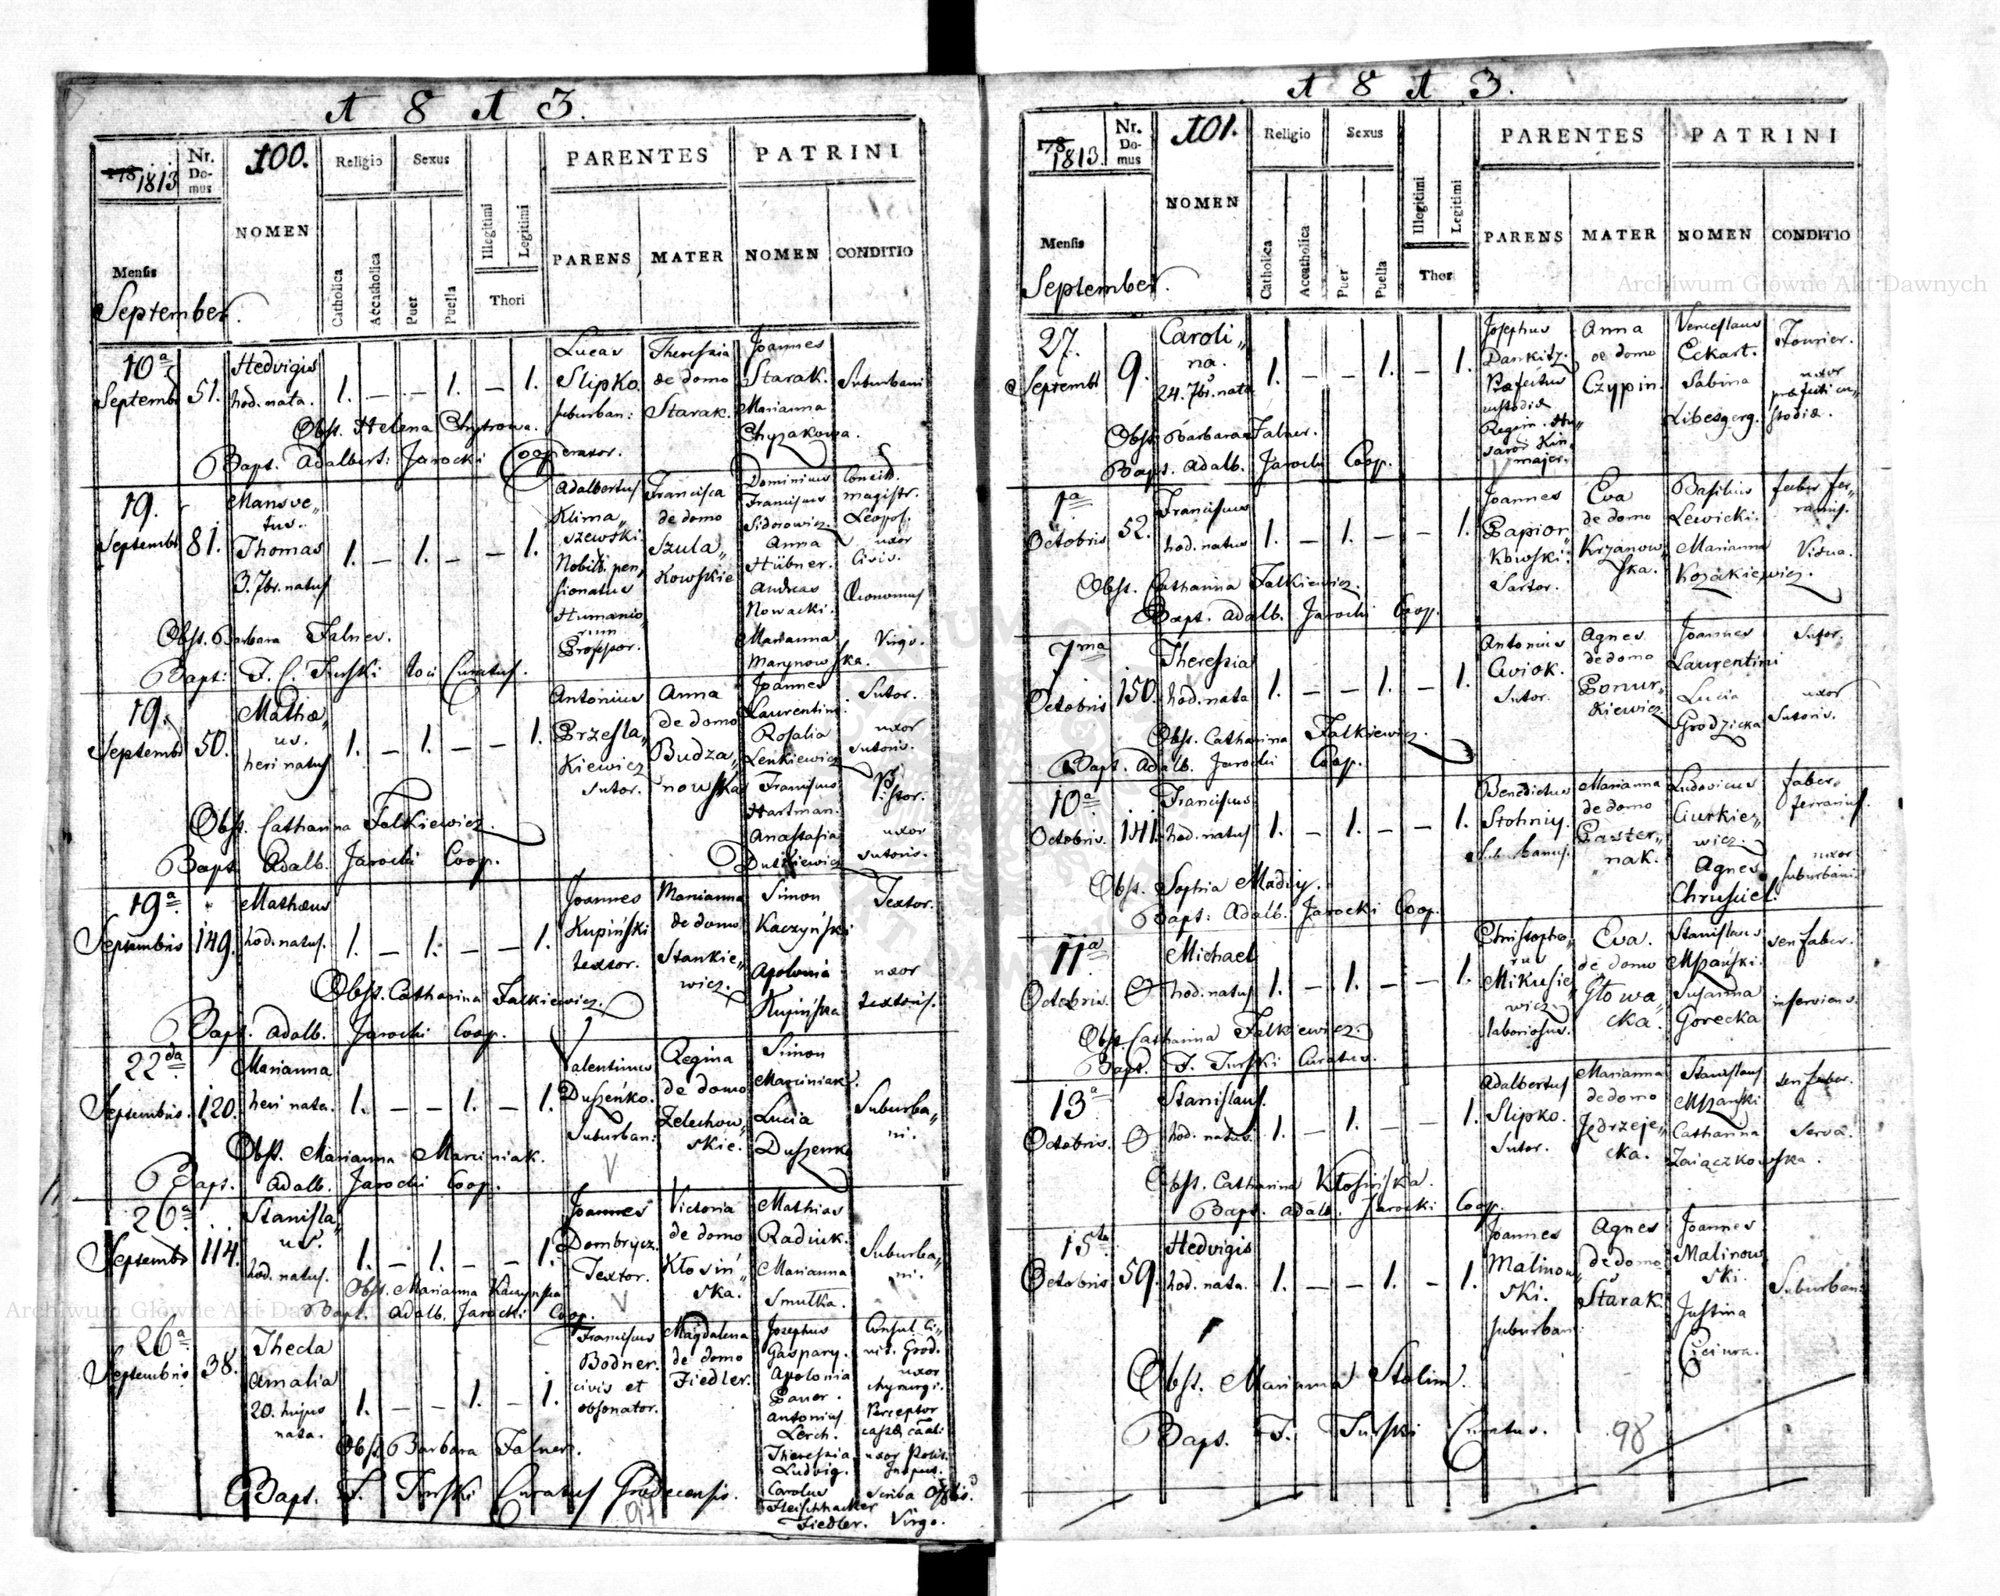 1813.
178 1813
Nr. Do-mus
100.
Religio
Sexus
PARENTES
PATRINI
NOMEN
Illegitimi
Legitimi
PARENS
MATER
NOMEN
CONDITIO
Mensis
September.
Catholica
Accatholica
Puer
Puella
Thori
10a Septemb 51. Hedvigis hod. nata. 1. – – 1. – 1.
Lucas Slipko. suburban:
Theressia de domo Starak.
Joannes Starak. Marianna Chyzakowa.
Suburbani
Obst. Helena Chytrowa.
Bapt. Adalbert: Jarocki Cooperator.
19. Septembr 81. Mansve„ tus. Thomas 3. 7br. natus 1. – 1. – – 1.
Adalbertus Klima„ szewski. Nobilis pen„ sionatus Humanio rum Professor.
Francisca de domo Szula„ kowskie
Dominus Franciscus Sidorowicz. Anna Hübner. Andreas Nowacki. Marianna Marynowska.
magistr. Leopol. uxor Civis. Oeconomus Virgo.
Obst. Barbara Falner.
Bapt: F. C. Turski loci Curatus.
19. Septembr 50. Mathæ„ us. heri natus 1. – 1. – – 1.
Antonius Przesla„ kiewicz sutor.
Anna de domo Budza„ nowska
Joannes Laurentini. Rosalia Lenkiewicz Franciscus Hartman. Anastasia Dutkiewicz
Sutor. uxor sutoris. Pistor. uxor sutoris.
Obst. Catharina Falkiewicz.
Bapt. Adalb. Jarocki Coop.
19a Septembris 149. Mathæus hod. natus. 1. – 1. – – 1.
Joannes Kupiński textor.
Marianna de domo Stankie„ wicz.
Simon Kaczyński Apolonia Kupińska
Textor. uxor textoris.
Obst. Catharina Falkiewicz.
Bapt. Adalb. Jarocki Coop.
22da Septembris. 120. Marianna heri nata. 1. – – 1. – 1.
Valentinus Duszeńko. Suburban:
Regina de domo Zelechow„ skie.
Simon Marciniak. Lucia Duszenko
Suburba„ ni.
Obst. Marianna Marciniak.
Bapt. Adalb. Jarocki Coop.
26a Septembr 114. Stanisla„ us. hod. natus. 1. – 1. – – 1.
Joannes Dombrycz. Textor.
Victoria de domo Kłosiń„ ska.
Mathias Radiuk. Marianna Smutka.
Suburba„ ni.
Obst. Marianna Kaczynska
Bapt. Adalb. Jarocki Coop.
26a Septembris 38. Thecla Amalia 20. hujus nata. 1. – – 1. – 1.
Franciscus Bodner. civis et obsonator.
Magdalena de domo Fiedler.
Josephus Gaspary. Apolonia Pauer. Antonius Lerch. Theressia Ludwig. Carolus Fleischhacker Fiedler.
Consul Ci„ vit. Grod. uxor chyrurgi. Perceptor uxor Scriba Virgo.
Obst. Barbara Falner.
Bapt. F. Turski Curatus Grodecensis.
1813.
178 1813.
Nr. Do-mus
101.
Religio
Sexus
PARENTES
PATRINI
NOMEN
Illegitimi
Legitimi
PARENS
MATER
NOMEN
CONDITIO
Mensis
September.
Catholica
Accatholica
Puer
Puella
Thori
27. Septembr 9. Caroli„ na. 24. 7br. nata 1. – – 1. – 1.
Josephus Dankitz. Præfectus custodiæ
Anna de domo Czypin.
Venceslaus Eckart. Sabina Libesgerg.
Fourier. uxor præfecti cu„ stodiæ.
Obst. Barbara Falner.
Bapt. Adalb. Jarocki Coop.
1a Octobris 52. Franciscus hod. natus 1. – 1. – – 1.
Joannes Papior„ kowski. Sartor.
Eva de domo Krzanow„ ska.
Basilius Lewicki. Marianna Kozakiewicz.
faber fer„ rarius. Vidua.
Obst. Catharina Falkiewicz.
Bapt. Adalb. Jarocki Coop.
7ma Octobris 150. Theressia hod. nata 1. – – 1. – 1.
Antonius Cwiok. Sutor.
Agnes de domo Ponur„ kiewicz
Joannes Laurentini Lucia Grodzicka
Sutor. uxor Sutoris.
Obst. Catharina Falkiewicz.
Bapt. Adalb. Jarocki Coop.
10a Octobris. 141. Franciscus hod. natus 1. – 1. – – 1.
Benedictus Stohniy. suburbanus.
Marianna de domo Paster„ nak.
Ludovicus Ciurkie„ wicz. Agnes Chrusciel.
faber ferrarius. uxor suburbani.
Obst. Sophia Madey.
Bapt: Adalb. Jarocki Coop.
11a Octobris. 0 Michael hod. natus 1. – 1. – – 1.
Christopho„ rus Mikusie„ wicz laboriosus.
Eva. de domo Głowa„ cka.
Stanislaus Mszanski. Susanna Gorecka
sen faber. inserviens.
Obst. Catharina Falkiewicz.
Bapt. F. Turski Curatus.
13a Octobris. 0 Stanislaus. hod. natus. 1. – 1. – – 1.
Adalbertus Slipko. Sutor.
Marianna de domo Jędrzeje„ cka.
Stanislaus Mszanski Catharina Zaiączkowska.
sen faber. serva.
Obst. Catharina Kłosińska.
Bapt. Adalb. Jarocki Coop.
15ta Octobris 59. Hedvigis hod. nata. 1. – – 1. – 1.
Joannes Malinow„ ski. suburban:
Agnes de domo Starak.
Joannes Malinow„ ski. Justina Ciciura.
Suburban:
Obst. Marianna Stolim.
Bapt. F. Turski Curatus.
98
Archiwum Główne Akt Dawnych
Archiwum Główne Akt Dawnych